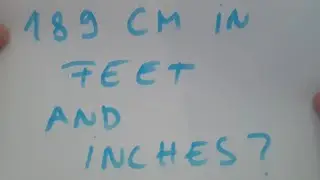 189 CM IN
FEET
AND
INCHES?